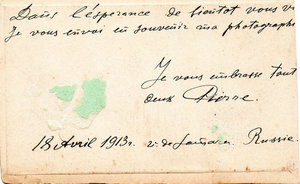 Dans l'éspérance de bientot vous v
Je vous envoi en souvenir ma photographi
Je vous embrasse tout
deux Pierre.
18 Avril 1913. v. de Samara. Russie.